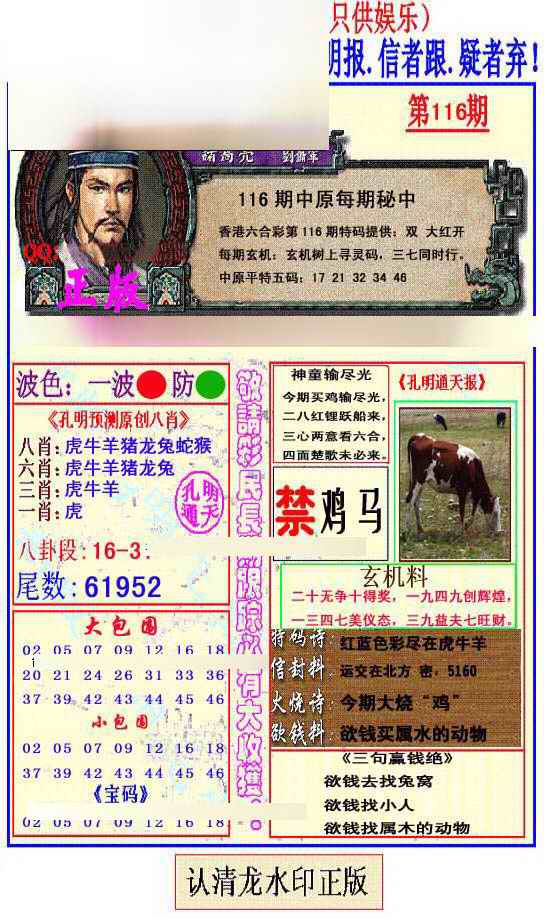 只供娱乐）
明报.信者跟.疑者弃！
第116期
諸葛亮 劉蕭军
116 期中原每期秘中
香港六合彩第 116 期特码提供：双 大红开
每期玄机：玄机树上寻灵码，三七同时行。
中原平特五码：17 21 32 34 46
QQ
正版
波色：一波 防
《孔明预测原创八肖》
八肖：虎牛羊猪龙兔蛇猴
六肖：虎牛羊猪龙兔
三肖：虎牛羊
一肖：虎
孔明
通天
八卦段：16-3.
尾数：61952
大包围
02 05 07 09 12 16 18
20 21 24 26 31 33 36
37 39 42 43 44 45 46
小包围
02 05 07 09 12 16 18
37 39 42 43 44 45 46
《宝码》
02 05 07 09 12 16 18
敬請彩民長期跟踪必有大收獲。
神童输尽光
今期买鸡输尽光，
二八红锂跃船来，
三心两意看六合，
四面楚歌未必来。
《孔明通天报》
禁鸡马
玄机料
二十无争十得奖，一九四九创辉煌，
一三四七美仪态，三九益夫七旺财。
特码诗：红蓝色彩尽在虎牛羊
信封料：运交在北方 密，5160
火烧诗：今期大烧“鸡”
欲钱料：欲钱买属水的动物
《三句赢钱绝》
欲钱去找兔窝
欲钱找小人
欲钱找属木的动物
认清龙水印正版